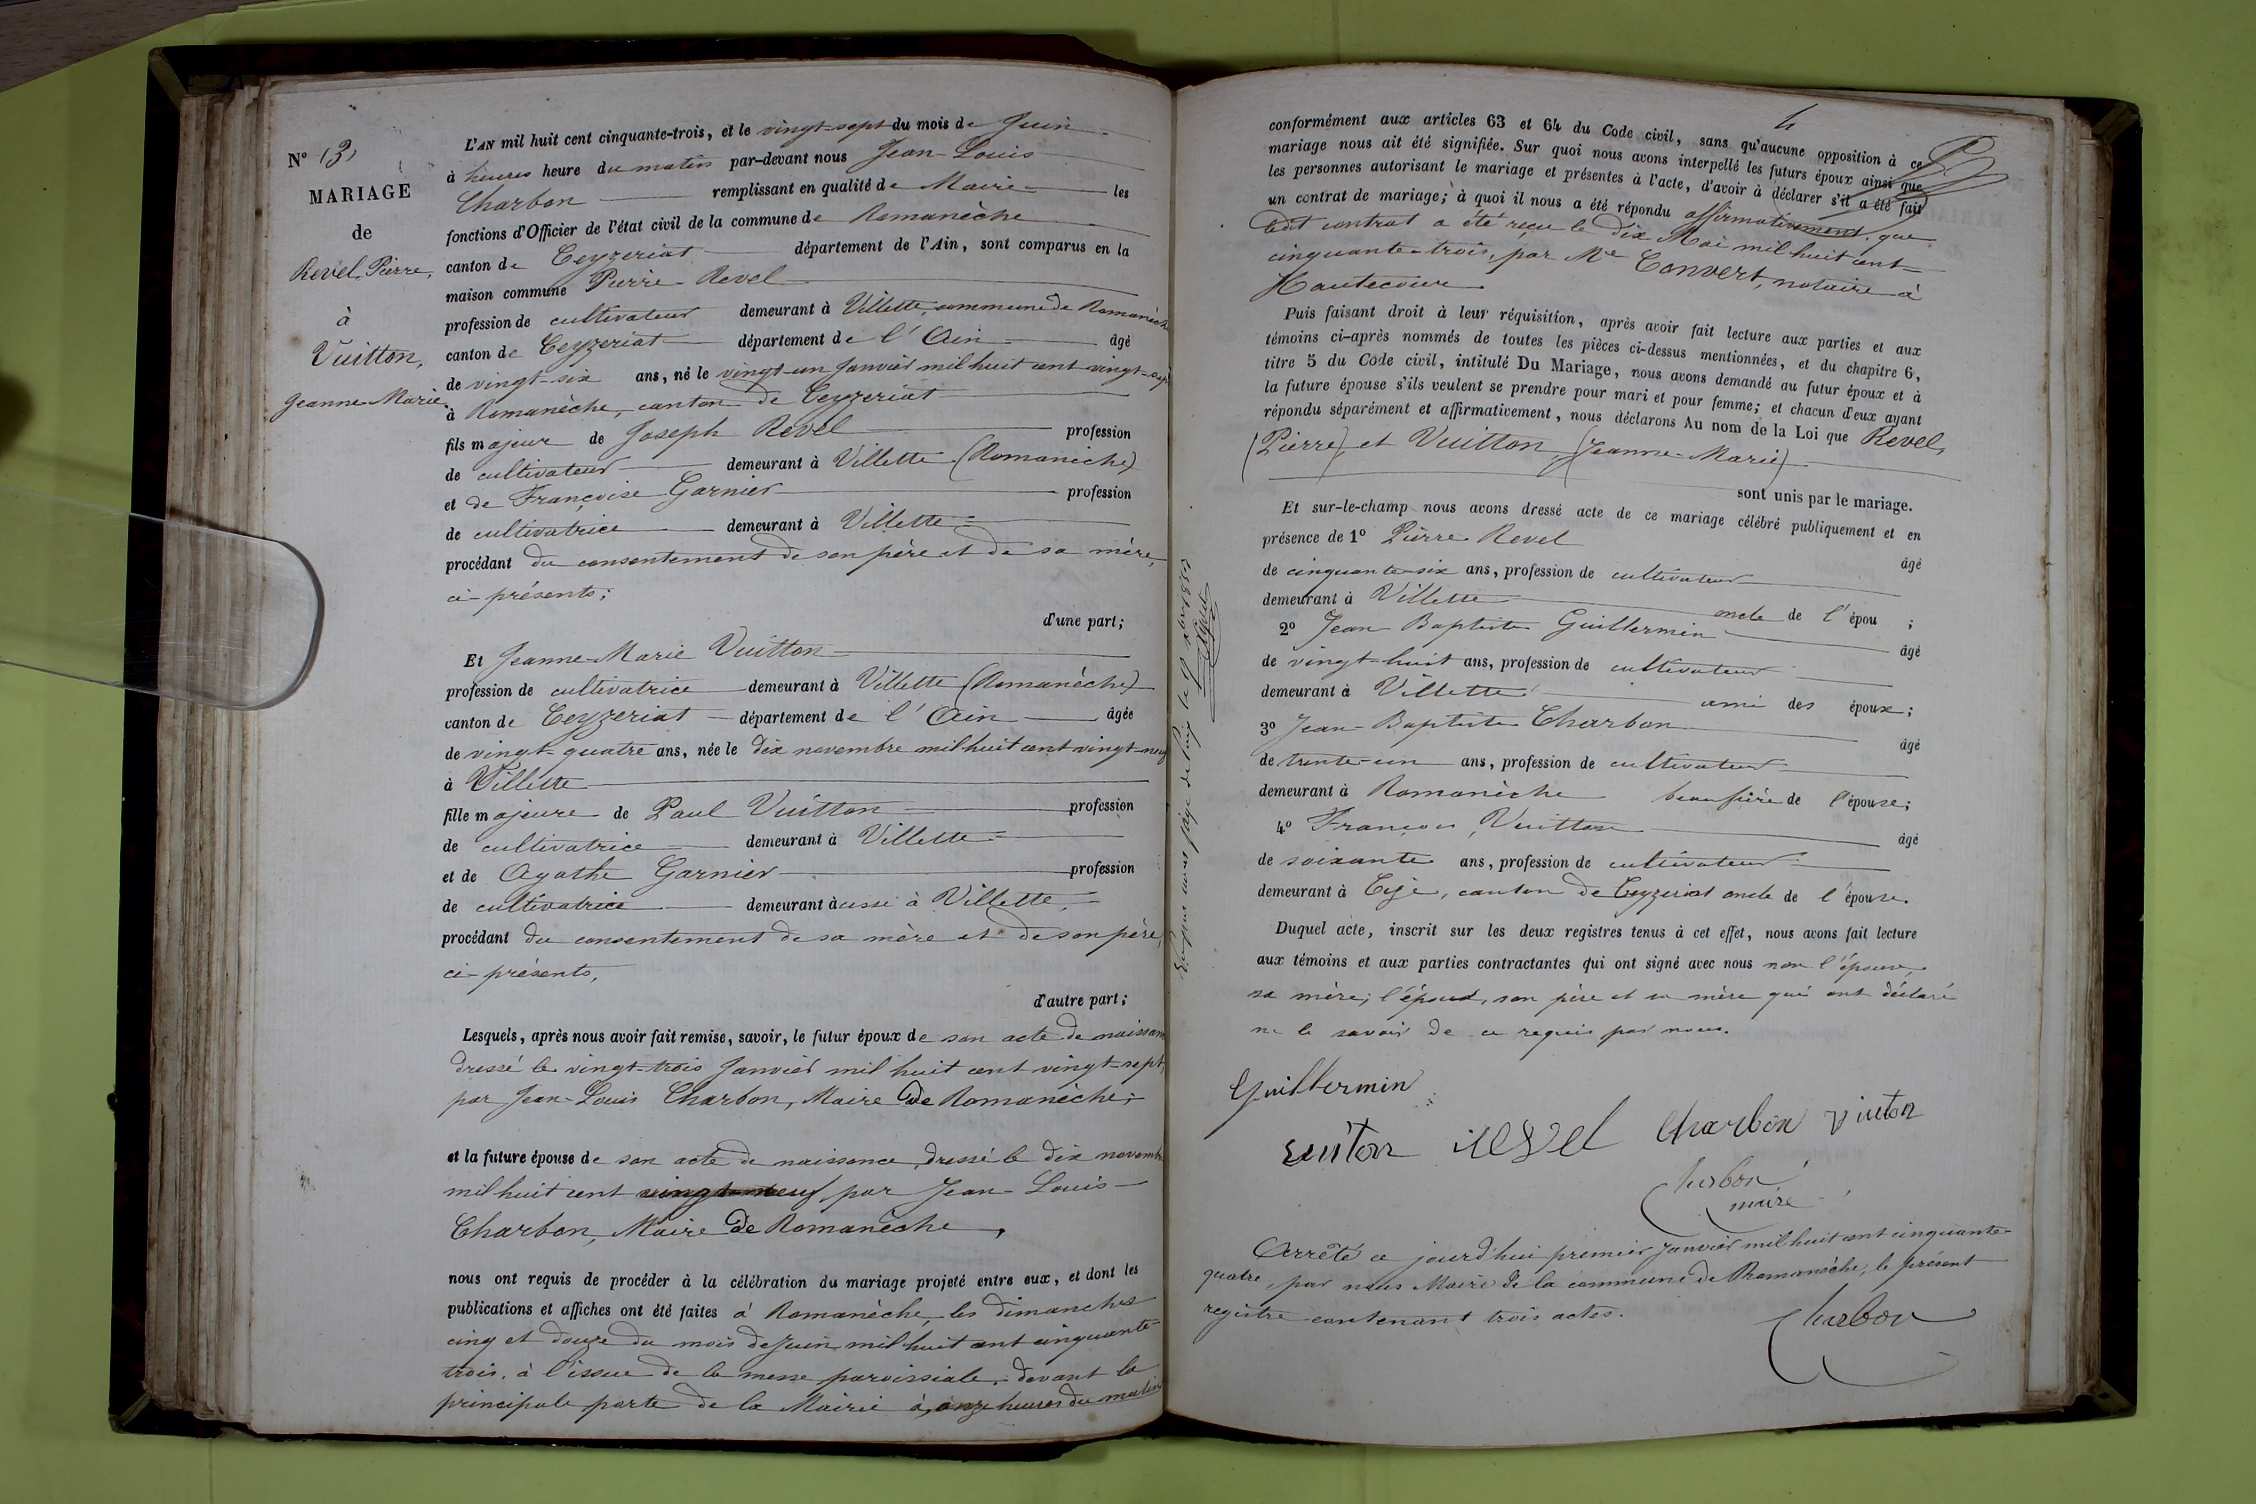 N° (3)
MARIAGE
de
Revel, Pierre,
à
Vuitton,
Jeanne-Marie
L'AN mil huit cent cinquante-trois, et le vingt-sept du mois de Juin
à heures heure du matin par-devant nous Jean-Louis
Charbon remplissant en qualité de Maire les
fonctions d'Officier de l'état civil de la commune de Romanèche
canton de Ceyzeriat département de l'Ain, sont comparus en la
maison commune Pierre Revel
profession de cultivateur demeurant à Villette, commune de Romanèche
canton de Ceyzeriat département de l'Ain âgé
de vingt-six ans, né le vingt-un Janvier mil huit cent vingt-sept
à Romanèche, canton de Ceyzeriat
fils majeur de Joseph Revel profession
de cultivateur demeurant à Villette (Romanèche)
et de Françoise Garnier profession
de cultivatrice demeurant à Villette
procédant du consentement de son père et de sa mère,
ci-présents;
d'une part;
Et Jeanne-Marie Vuitton
profession de cultivatrice demeurant à Villette (Romanèche)
canton de Ceyzeriat département de l'Ain âgée
de vingt-quatre ans, née le dix novembre mil huit cent vingt-neuf
à Villette
fille majeure de Paul Vuitton profession
de cultivatrice demeurant à Villette
et de Agathe Garnier profession
de cultivatrice demeurant aussi à Villette,
procédant du consentement de sa mère et de son père,
ci-présents,
d'autre part;
Lesquels, après nous avoir fait remise, savoir, le futur époux de son acte de naissance
dressé le vingt-trois Janvier mil huit cent vingt-sept,
par Jean-Louis Charbon, Maire de Romanèche;
et la future épouse de son acte de naissance, dressé le dix novembre
mil huit cent vingt-neuf par Jean-Louis
Charbon, Maire de Romanèche,
nous ont requis de procéder à la célébration du mariage projeté entre eux, et dont les
publications et affiches ont été faites à Romanèche, les dimanches
cinq et douze du mois de Juin mil huit cent cinquante-
trois, à l'issue de la messe paroissiale, devant la
principale porte de la Mairie à onze heures du matin
4
conformément aux articles 63 et 64 du Code civil, sans qu'aucune opposition à ce
mariage nous ait été signifiée. Sur quoi nous avons interpellé les futurs époux ainsi que
les personnes autorisant le mariage et présentes à l'acte, d'avoir à déclarer s'il a été fait
un contrat de mariage; à quoi il nous a été répondu affirmativement, que
ledit contrat a été reçu le dix Mai mil huit cent
cinquante-trois, par Me Convert, notaire à
Hautecour
Puis faisant droit à leur réquisition, après avoir fait lecture aux parties et aux
témoins ci-après nommés de toutes les pièces ci-dessus mentionnées, et du chapitre 6,
titre 5 du Code civil, intitulé Du Mariage, nous avons demandé au futur époux et à
la future épouse s'ils veulent se prendre pour mari et pour femme; et chacun d'eux ayant
répondu séparément et affirmativement, nous déclarons Au nom de la Loi que Revel,
(Pierre) et Vuitton, (Jeanne-Marie)
sont unis par le mariage.
Et sur-le-champ nous avons dressé acte de ce mariage célébré publiquement et en
présence de 1° Pierre Revel âgé
de cinquante-six ans, profession de cultivateur
demeurant à Villette oncle de l'épou ;
2° Jean Baptiste Guillermin âgé
de vingt-huit ans, profession de cultivateur
demeurant à Villette ami des époux;
3° Jean-Baptiste Charbon âgé
de trente-un ans, profession de cultivateur
demeurant à Romanèche beau frère de l'épouse;
4° François Vuitton âgé
de soixante ans, profession de cultivateur
demeurant à Cize, canton de Ceyzeriat oncle de l'épouse.
Duquel acte, inscrit sur les deux registres tenus à cet effet, nous avons fait lecture
aux témoins et aux parties contractantes qui ont signé avec nous non l'épouse,
sa mère; l'époux, son père et sa mère qui ont déclaré
ne le savoir de ce requis par nous.
Guillermin
vuiton revel Charbon vuiton
Charbon
maire
Arrêté ce jourd'hui premier Janvier mil huit cent cinquante-
quatre, par nous Maire de la commune de Romanèche, le présent
registre contenant trois actes.
Charbon